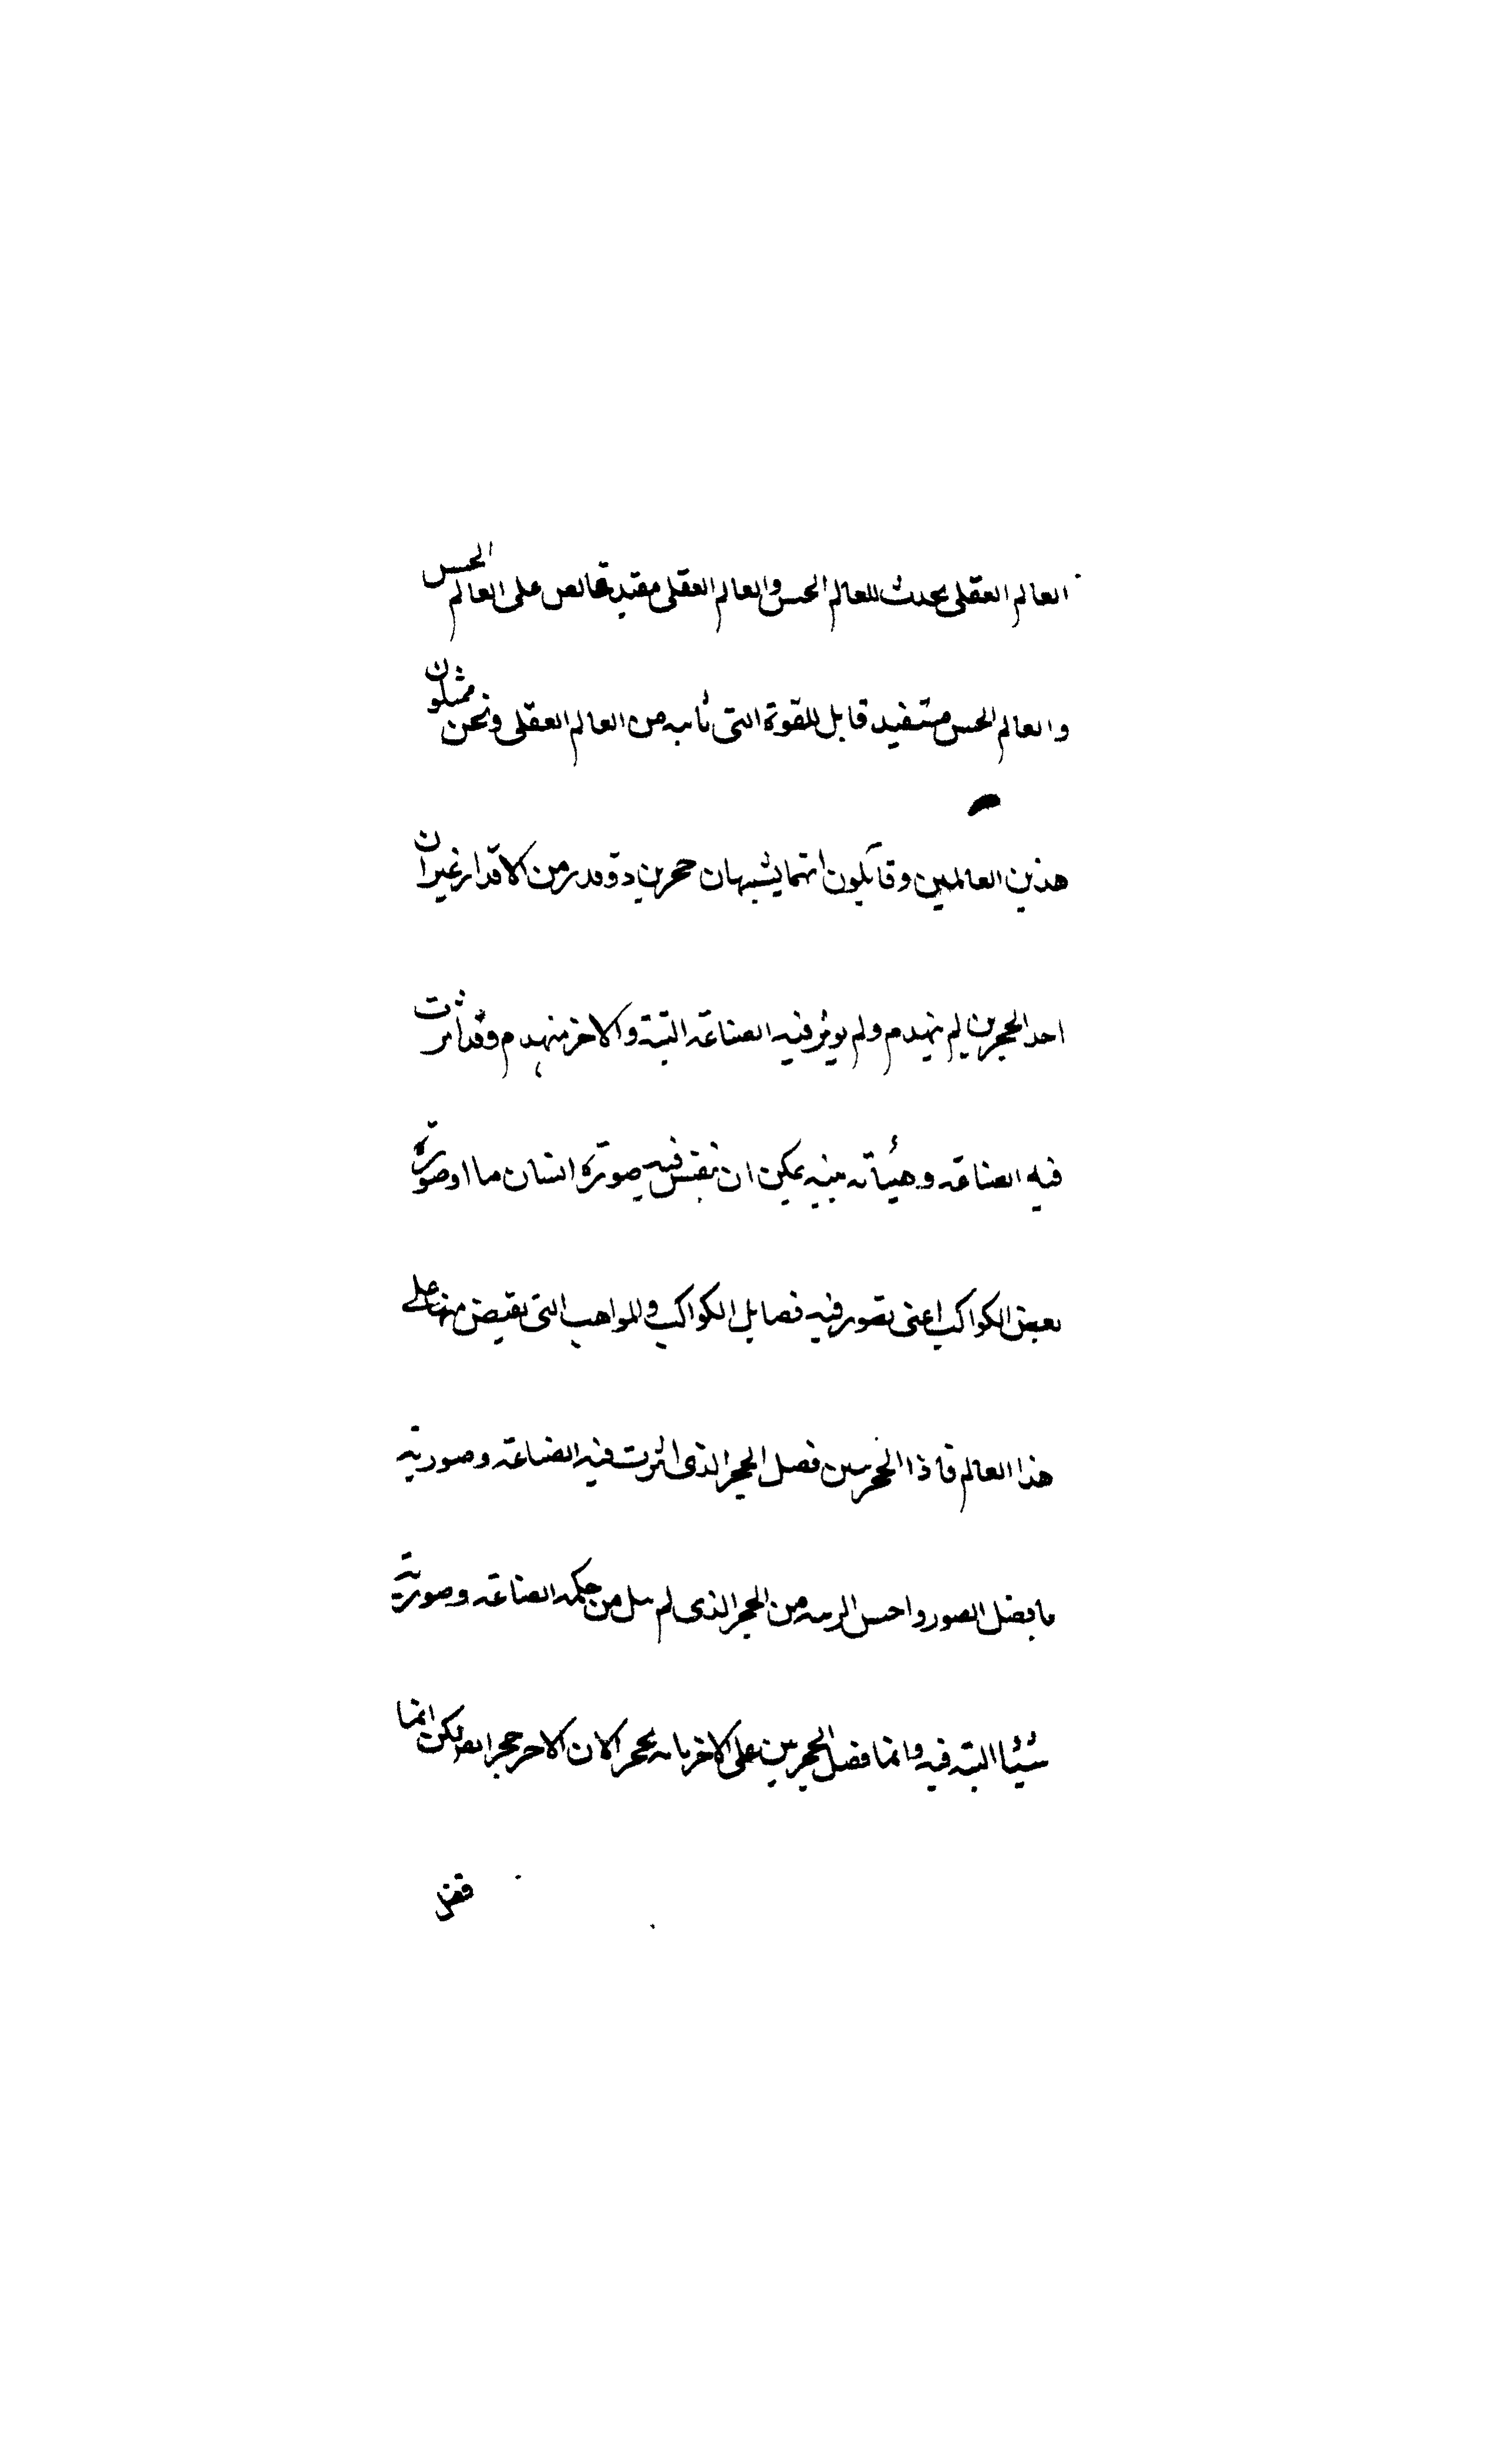 العالم العقلى يحدث للعالم الحس والعالم العقلى مفيد فائض على العالم الحس
والعالم الحس مستفيد قابل للقوة التى تاتيه من العالم العقلى ونحن ممثلون
هذين العالمين وقائلون انهما يشبهان حجرين ذوى قدر من الاقدار غير ان
احد الحجرين لم يهندم ولم يوثر فيه الصناعة البتة والاخر مهندم وقد اثرت
فيه الصناعة وهيأته هيئة يمكن ان ينقش فيه صورة انسان ما او صورة
بعض الكواكب اعنى تصور فيه فضايل الكواكب والمواهب التى تفيض منها على
هذا العالم فاذا فصل الحجر الذى اثرت فيه الصناعة وصورته
بافضل الصور واحسن الزينة من الحجر الذى لم ينل من حكمة الصناعة وصورته
شيئا البتة فيه وانما فضل الحجرين على الاخر بانه حجر لان الاخر حجر ايضا لكن انما
فضل